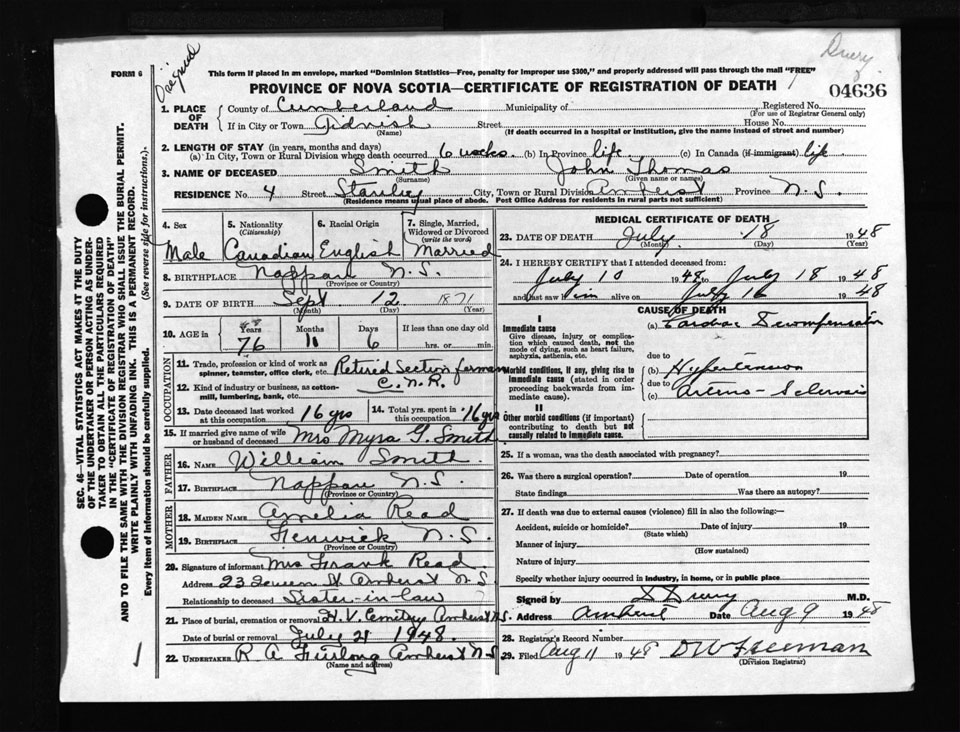 Drury
FORM 6
This form if placed in an envelope, marked "Dominion Statistics—Free, penalty for improper use $300," and properly addressed will pass through the mail "FREE"
PROVINCE OF NOVA SCOTIA—CERTIFICATE OF REGISTRATION OF DEATH
04636
1. PLACE OF DEATH
County of Cumberland Municipality of Registered No.
(For use of Registrar General only)
If in City or Town Tidnish Street House No.
(Name) (If death occurred in a hospital or institution, give the name instead of street and number)
2. LENGTH OF STAY (in years, months and days)
(a) In City, Town or Rural Division where death occurred 6 weeks. (b) In Province life (c) In Canada (if immigrant) life
3. NAME OF DECEASED Smith John Thomas
(Surname) (Given name or names)
RESIDENCE No. 4 Street Stanley City, Town or Rural Division Amherst Province N.S.
(Residence means usual place of abode. Post Office Address for residents in rural parts not sufficient)
4. Sex 5. Nationality (Citizenship) 6. Racial Origin 7. Single, Married, Widowed or Divorced (write the word)
Male Canadian English Married
8. BIRTHPLACE Nappan N.S.
(Province or Country)
9. DATE OF BIRTH Sept 12 1871
(Month) (Day) (Year)
10. AGE in Years Months Days If less than one day old
76 11 6 hrs. or min.
OCCUPATION
11. Trade, profession or kind of work as spinner, teamster, office clerk, etc. Retired Section forman
12. Kind of industry or business, as cotton-mill, lumbering, bank, etc. C.N.R.
13. Date deceased last worked at this occupation 16 yrs 14. Total yrs. spent in this occupation 16 yrs
15. If married give name of wife or husband of deceased Mrs Myra G. Smith
FATHER
16. NAME William Smith
17. BIRTHPLACE Nappan N.S.
(Province or Country)
MOTHER
18. MAIDEN NAME Amelia Read
19. BIRTHPLACE Fenwick N.S.
(Province or Country)
20. Signature of informant Mrs Frank Read
Address 23 Queen St Amherst N.S.
Relationship to deceased Sister-in-law
21. Place of burial, cremation or removal H.V. Cemitry Amherst N.S.
Date of burial or removal July 21 1948.
22. UNDERTAKER R A Furlong Amherst N S
(Name and address)
MEDICAL CERTIFICATE OF DEATH
23. DATE OF DEATH July 18 1948
(Month) (Day) (Year)
24. I HEREBY CERTIFY that I attended deceased from:
July 10 1948 to July 18 1948
and last saw him alive on July 16 1948
CAUSE OF DEATH
I
Immediate cause
Give disease, injury or complication which caused death, not the mode of dying, such as heart failure, asphyxia, asthenia, etc.
(a) Cardiac Decompensation
due to
Morbid conditions, if any, giving rise to immediate cause (stated in order proceeding backwards from immediate cause).
(b) Hypertension
due to
(c) Arterio-Sclerosis
II
Other morbid conditions (if important) contributing to death but not causally related to immediate cause.
25. If a woman, was the death associated with pregnancy?
26. Was there a surgical operation? Date of operation 19
State findings Was there an autopsy?
27. If death was due to external causes (violence) fill in also the following:—
Accident, suicide or homicide? Date of injury 19
(State which)
Manner of injury
(How sustained)
Nature of injury
Specify whether injury occurred in industry, in home, or in public place
Signed by D Drury M.D.
Address Amherst Date Aug 9 1948
28. Registrar's Record Number
29. Filed Aug 11 1948 D W Freeman
(Division Registrar)
SEC. 46—VITAL STATISTICS ACT MAKES IT THE DUTY
OF THE UNDERTAKER OR PERSON ACTING AS UNDER-
TAKER TO OBTAIN ALL THE PARTICULARS REQUIRED
IN THE "CERTIFICATE OF REGISTRATION OF DEATH"
AND TO FILE THE SAME WITH THE DIVISION REGISTRAR WHO SHALL ISSUE THE BURIAL PERMIT.
WRITE PLAINLY WITH UNFADING INK. THIS IS A PERMANENT RECORD.
Every item of Information should be carefully supplied. (See reverse side for instructions.)